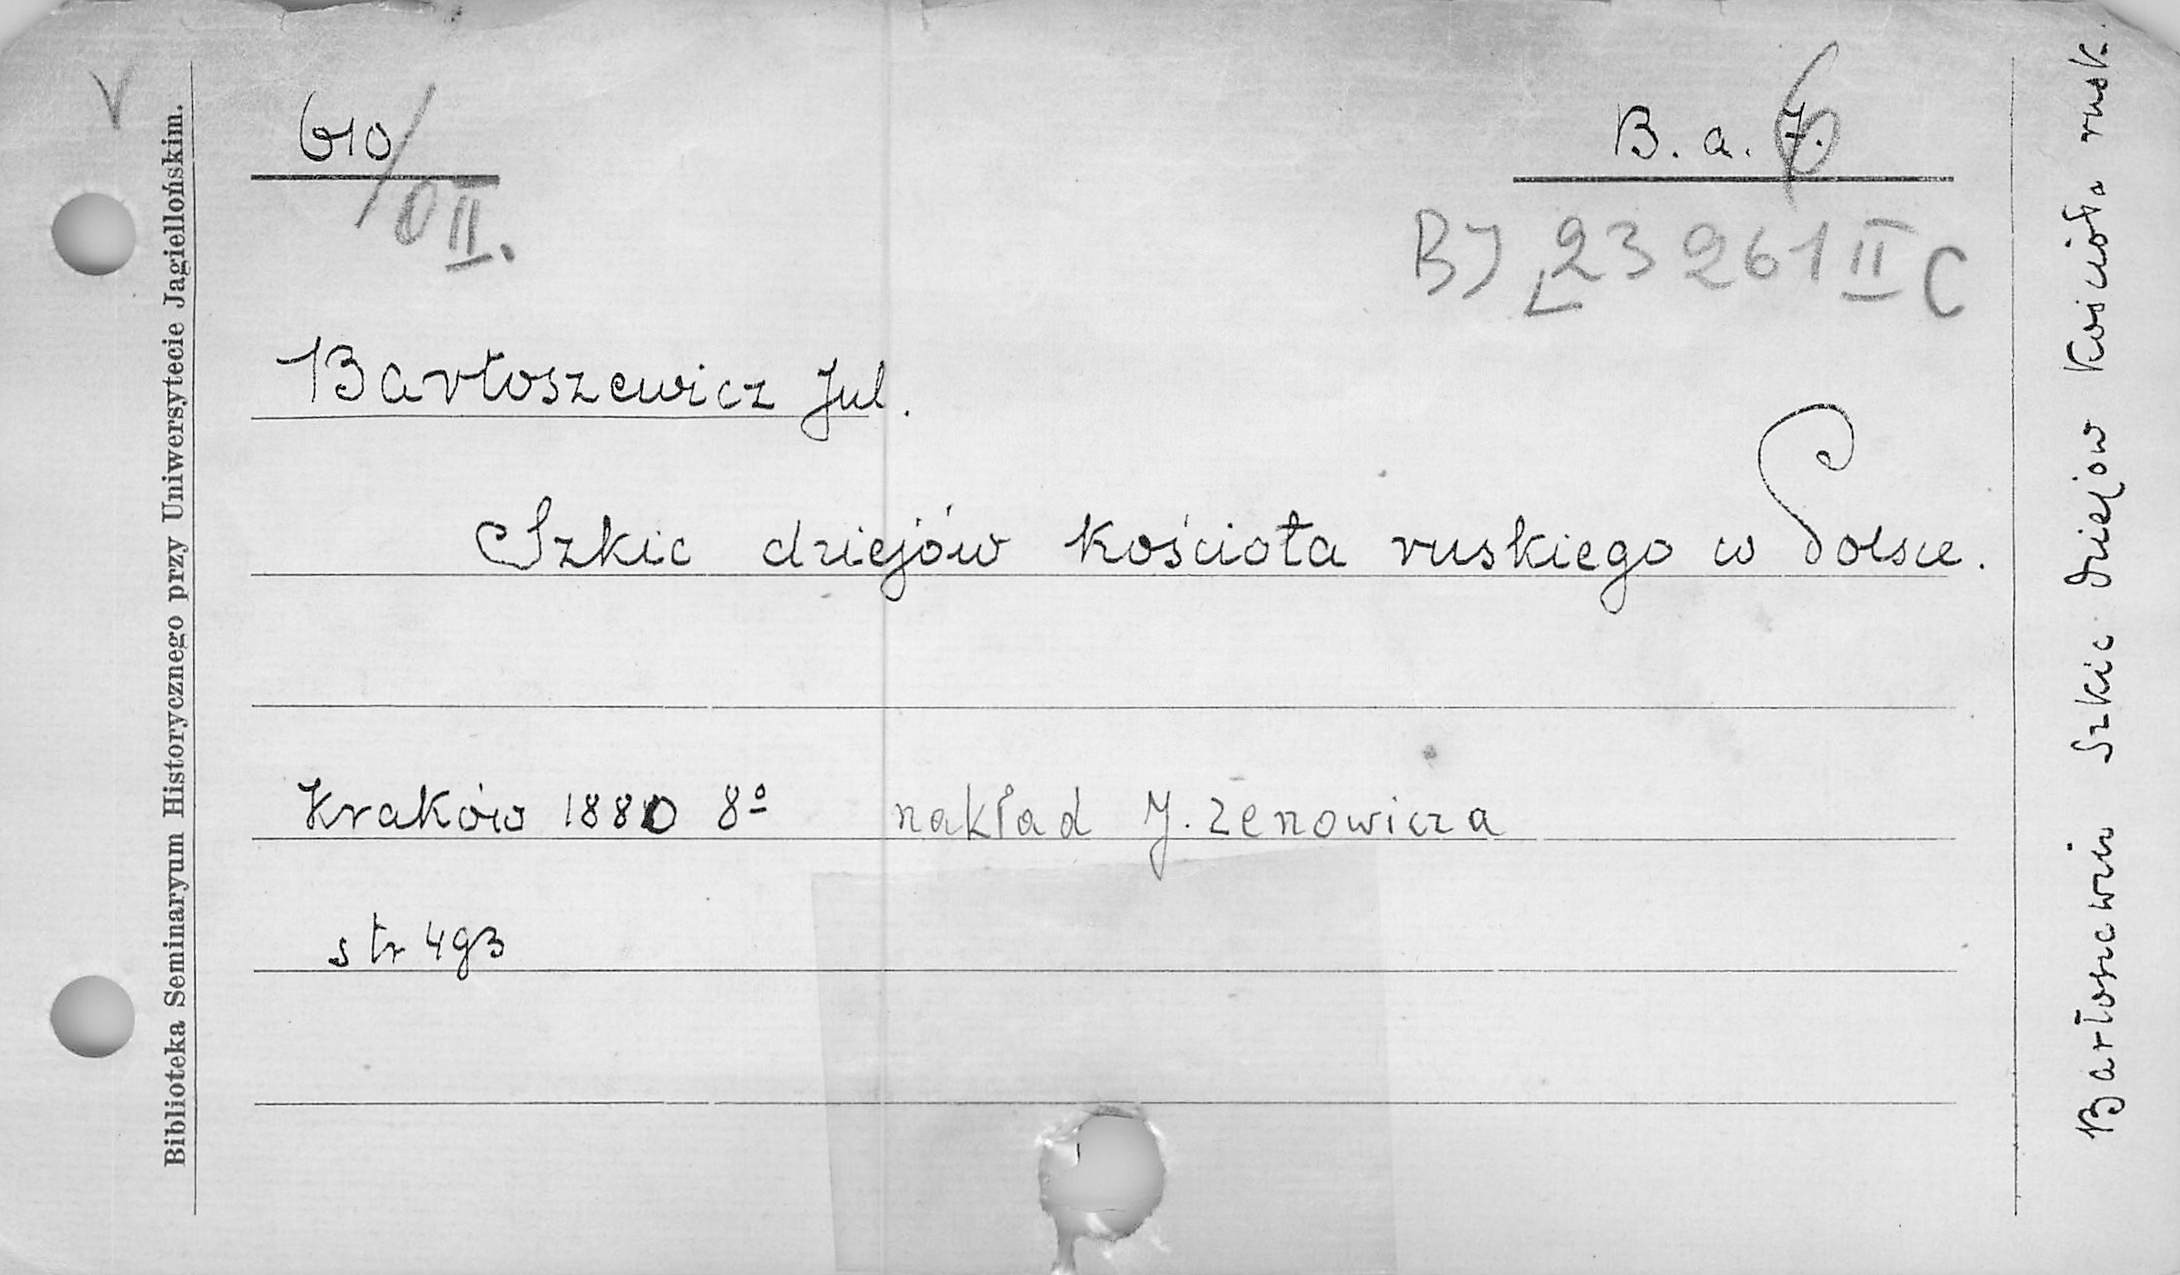 V
610/
0 II.
B. a. 6
BJ 23 261 II C
Bartoszewicz Jul.
Szkic dziejów kościoła ruskiego w Polsce.
Kraków 1880 8º nakład J. Zenowicza
str 493
Biblioteka Seminaryum Historycznego przy Uniwersytecie Jagiellońskim.
Bartoszewicz Szkic dziejow Kościoła rusk.